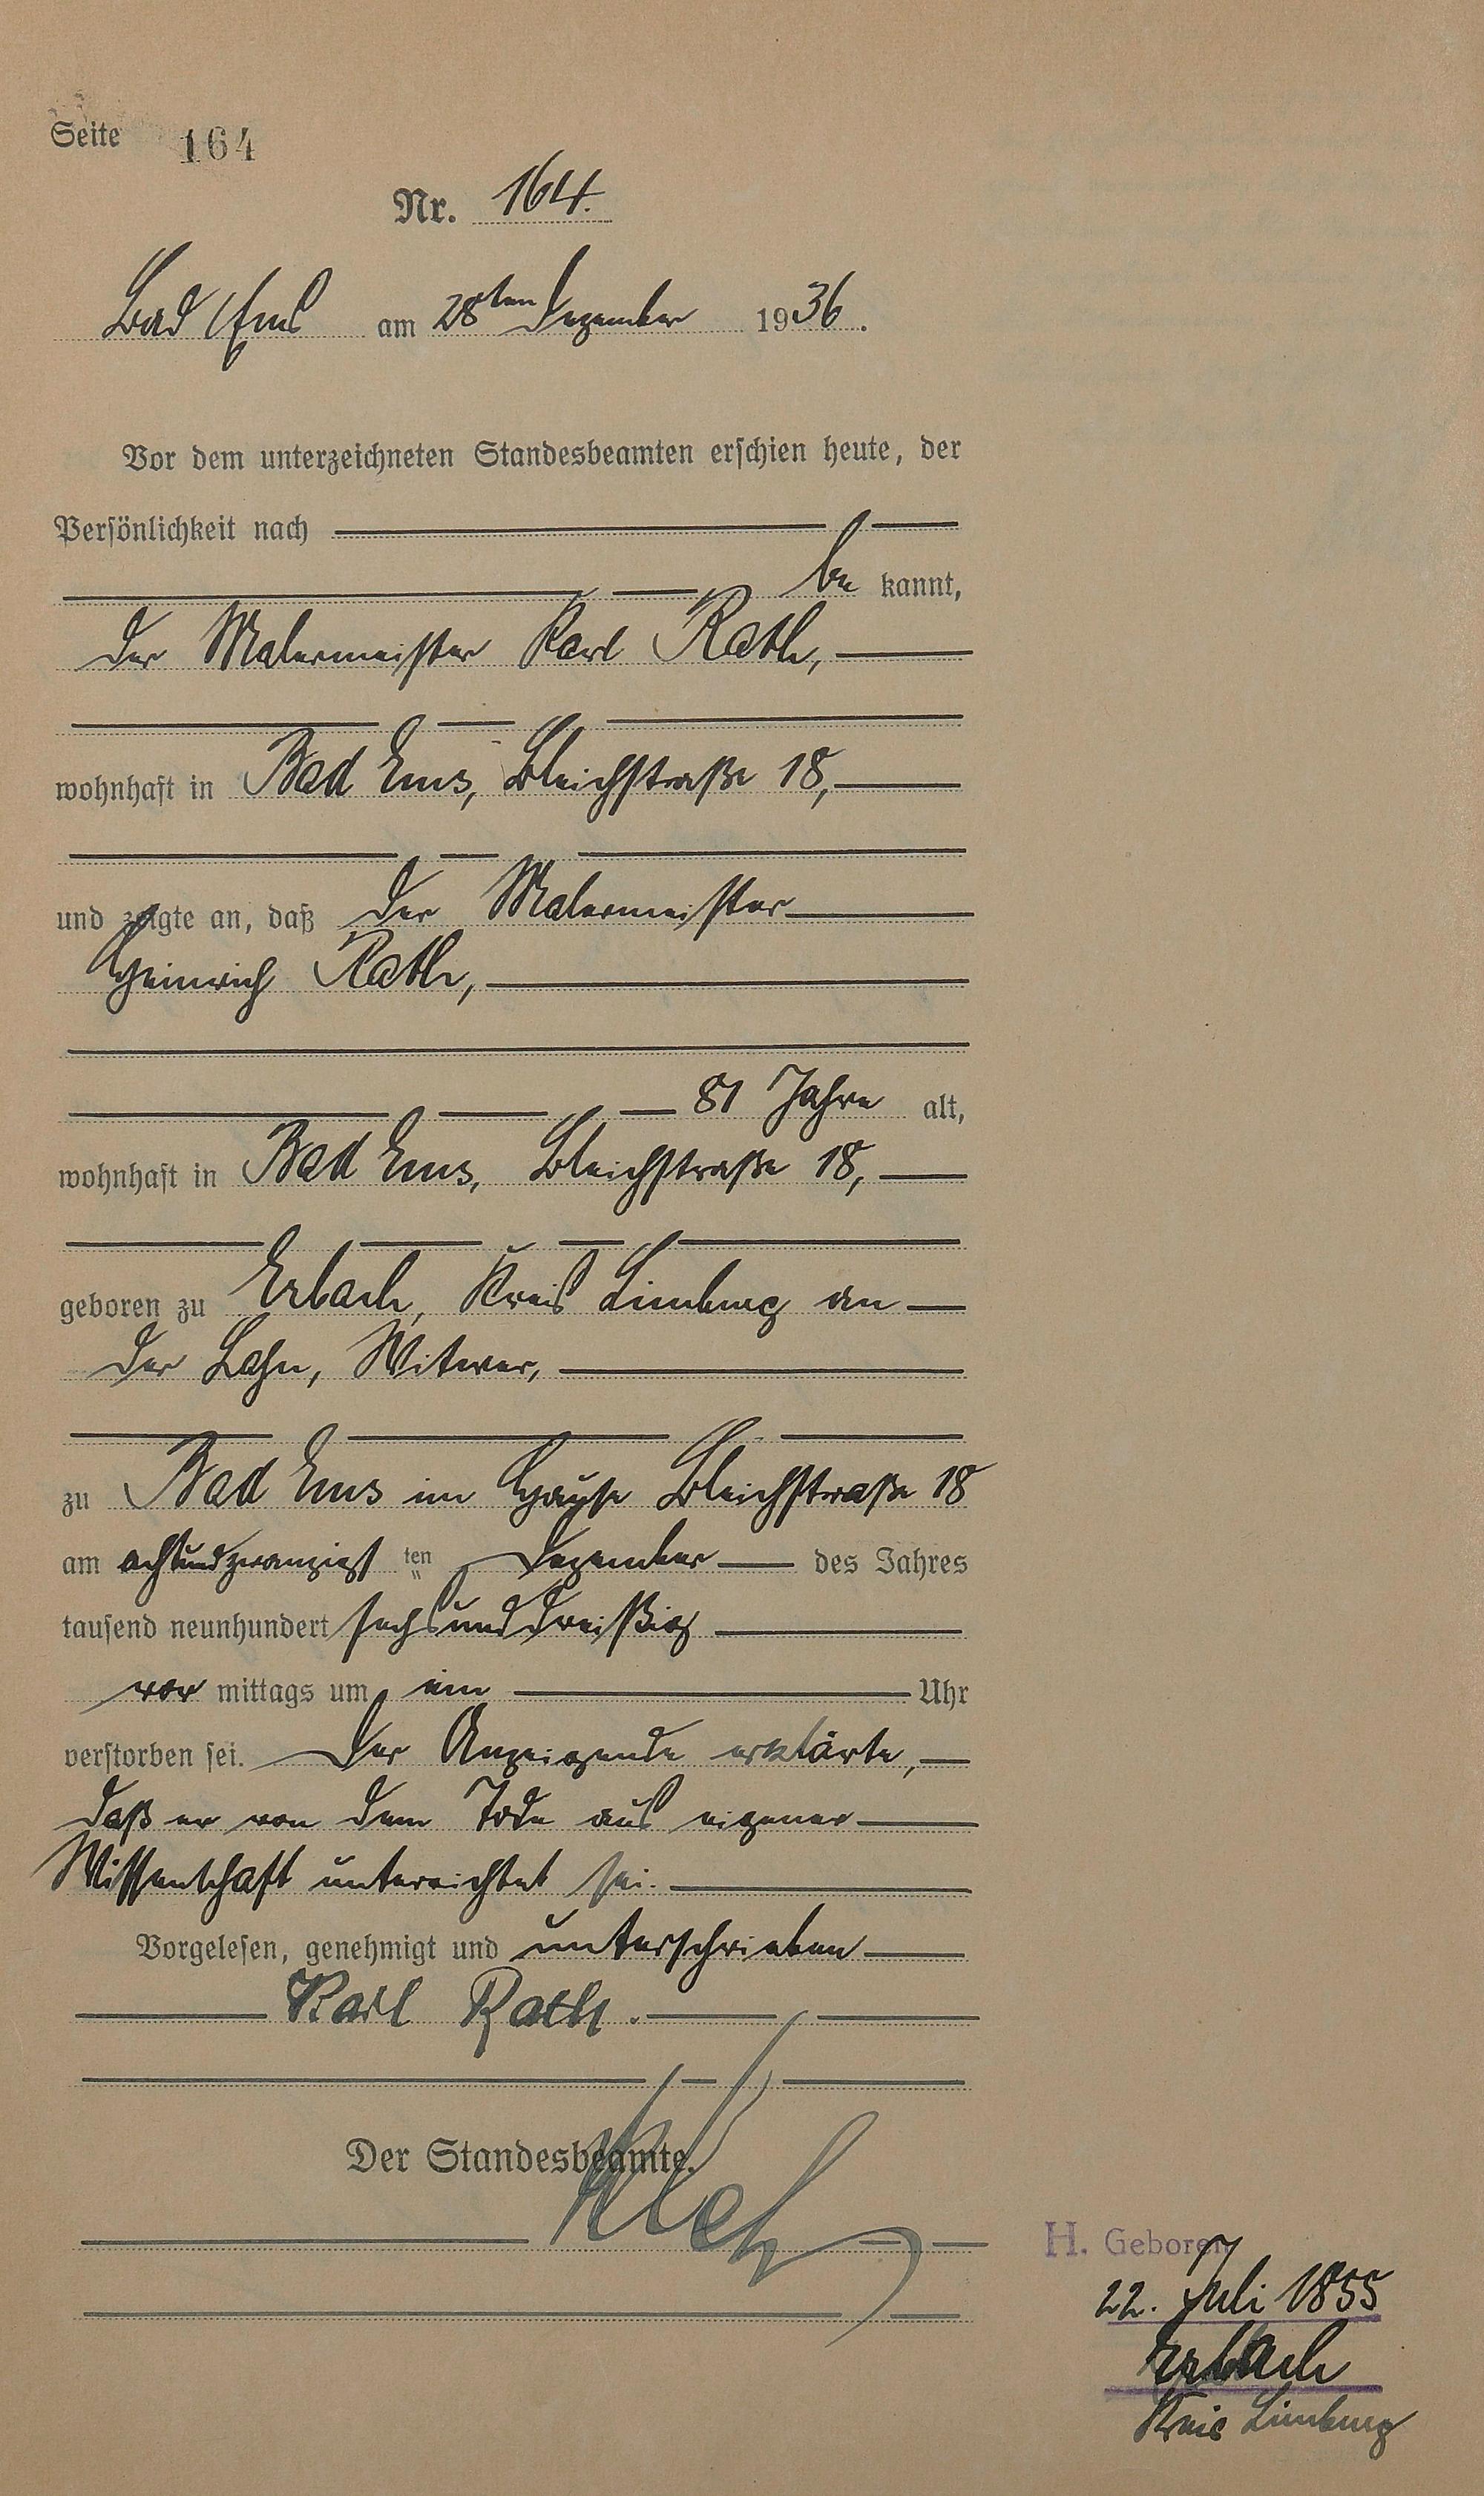 Seite 164
Nr. 164.
Bad Ems am 28ten Dezember 1936.
Vor dem unterzeichneten Standesbeamten erschien heute, der
Persönlichkeit nach
be kannt,
der Malermeister Karl Rath,
wohnhaft in Bad Ems, Bleichstraße 18,
und zeigte an, daß der Malermeister
Heinrich Rath,
81 Jahre alt,
wohnhaft in Bad Ems, Bleichstraße 18,
geboren zu Erbach, Kreis Limburg an
der Lahn, Witwer,
zu Bad Ems im Hause Bleichstraße 18
am achtundzwanzigsten Dezember des Jahres
tausend neunhundert sechsunddreißig
vor mittags um ein Uhr
verstorben sei. Der Anzeigende erklärte,
daß er von dem Tode aus eigener
Wissenschaft unterrichtet sei.
Vorgelesen, genehmigt und unterschrieben
Karl Rath.
Der Standesbeamte.
H. Geboren
22. Juli 1855
Erbach
Kreis Limburg